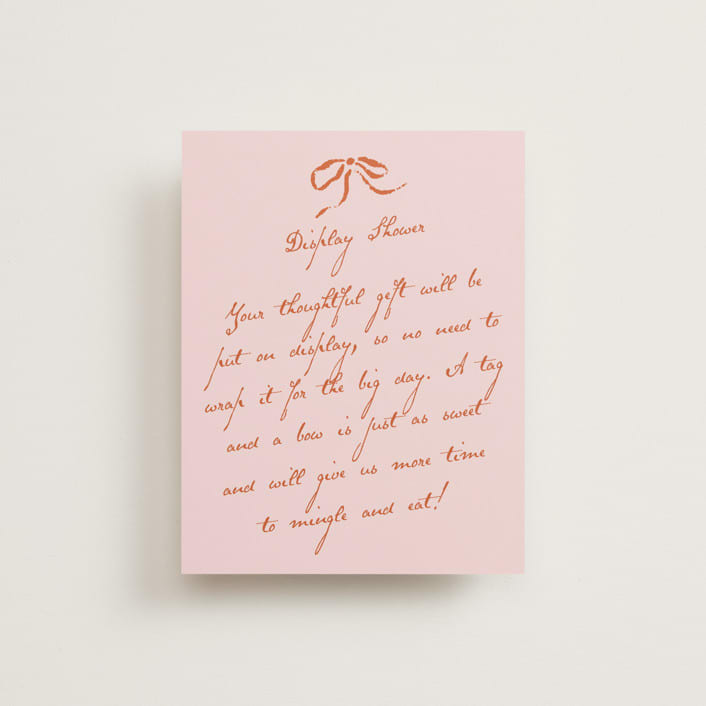 Display Shower
Your thoughtful gift will be
put on display, so no need to
wrap it for the big day. A tag
and a bow is just as sweet
and will give us more time
to mingle and eat!